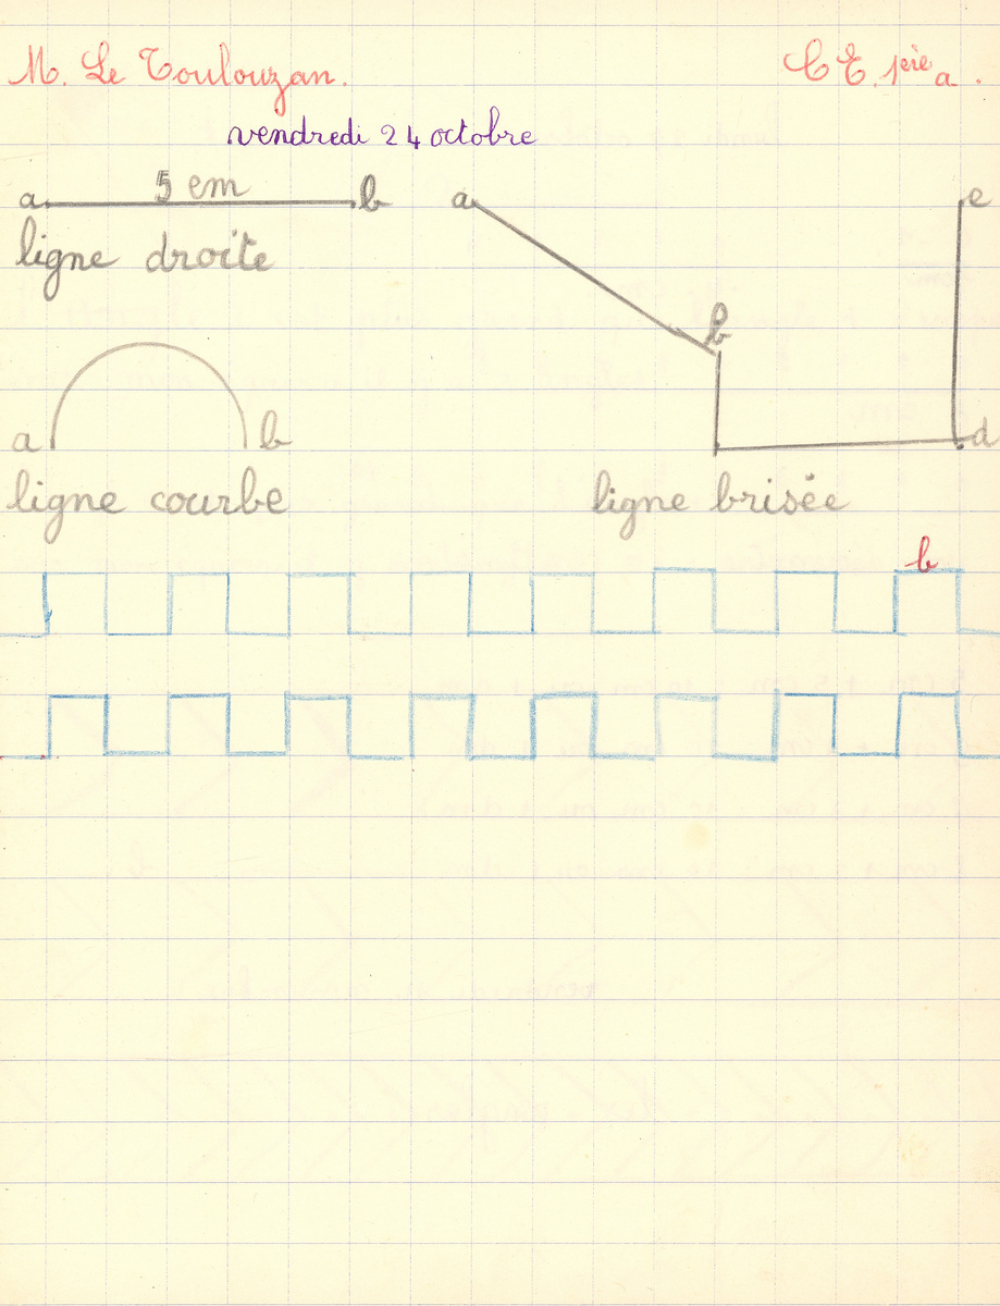 M. Le Toulouzan. CE. 1ère a.
vendredi 24 octobre
a 5 cm b
ligne droite
a b d e
a b
ligne courbe
ligne brisée
b